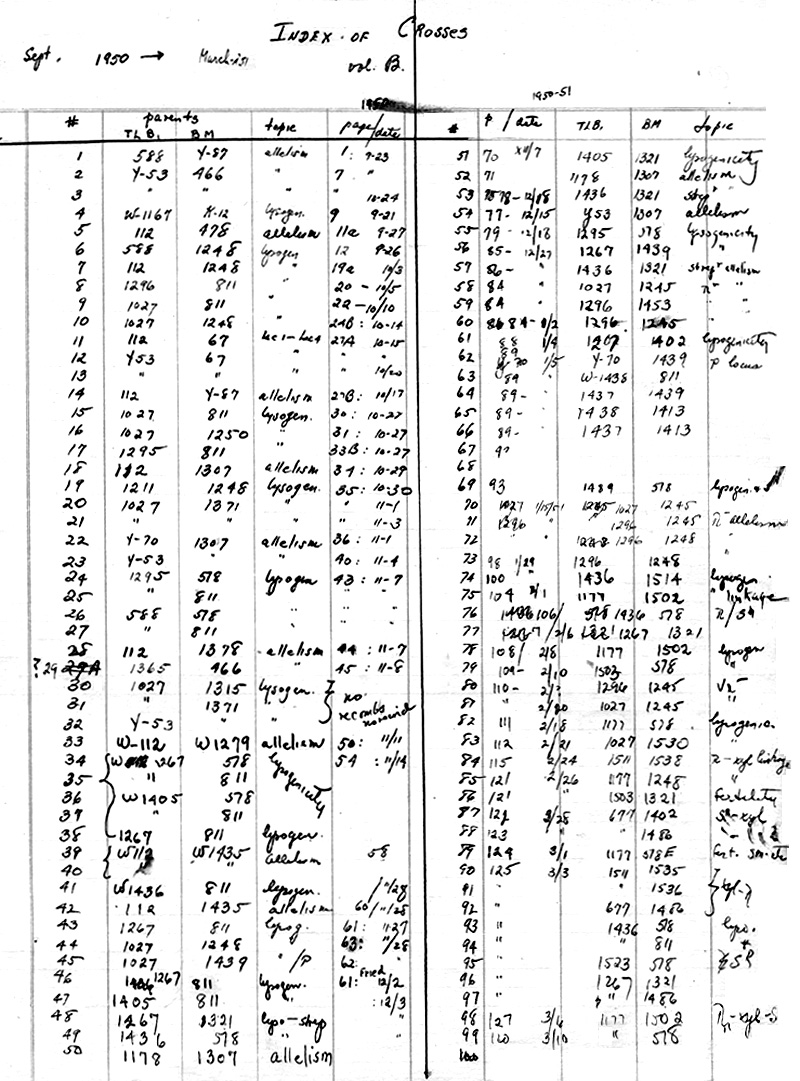 INDEX OF CROSSES
Sept. 1950 → March-151
vol. B.
1950
# parents topic page/date
TLB, BM
1 588 Y-87 allelism 1: 9-23
2 Y-53 466 " 7 "
3 " " " " 10-24
4 W-1167 K-12 lysogen. 9 9-21
5 112 478 allelism 11a 9-27
6 588 1248 lysogen 12 9-26
7 112 1248 " 19a 10/3
8 1296 811 " 20 - 10/5
9 1027 811 " 22 - 10/10
10 1027 1248 " 24B: 10-14
11 112 67 lac1-lac4 27A 10-15
12 Y53 67 " " "
13 " " " " 10/20
14 112 Y-87 allelism 27B: 10/17
15 1027 811 lysogen. 30: 10-27
16 1027 1250 " 31: 10-27
17 1295 811 " 33B: 10-27
18 112 1307 allelism 34: 10-29
19 1211 1248 lysogen. 35: 10-30
20 1027 1371 " " 11-1
21 " " " " 11-3
22 Y-70 1307 allelism 36: 11-1
23 Y-53 " " 40: 11-4
24 1295 578 lysogen 43: 11-7
25 " 811 " " "
26 588 578 " " "
27 " 811 " " "
28 112 1378 allelism 44: 11-7
? 29 29A 1365 466 " 45: 11-8
30 1027 1315 lysogen. no recombs
31 " 1371 "
32 Y-53 " "
33 W-112 W1279 allelism 50: 11/11
34 W 1267 578 lysogenicity 54: 11/14
35 " 811
36 W1405 578
37 " 811
38 1267 811 lysogen.
39 W112 W1435 allelism 58
40 " "
41 W1436 811 lysogen. "/28
42 112 1435 allelism 60/11/28
43 1267 811 lysog. 61: 11-27
44 1027 1248 " 63: "/28
45 1027 1439 "/P 62:
46 1267 811 lysogen. Fried 61: 12/2
47 1405 811 " : 12/3
48 1267 1321 lyso-strep "
49 1436 578 " "
50 1178 1307 allelism
1950-51
# P / date TLB, BM topic
51 70 XII/7 1405 1321 lysogenicity
52 71 1178 1307 allelism
53 78 - 12/18 1436 1321 strep "
54 77 - 12/15 Y53 1307 allelism
55 79 - 12/18 1295 578 lysogenicity
56 85 - 12/27 1267 1439 "
57 86 - " 1436 1321 strepr allelism
58 84 " 1027 1245 "
59 84 " 1296 1453 "
60 84 - 1/2 1296 1245
61 88 1/4 1207 1402 lysogenicity
62 89 1/5 Y-70 1439 P locus
63 89 " W-1438 811
64 89 - " 1437 1439
65 89 - " 1438 1413
66 89 - 1437 1413
67
68
69 93 1489 578 lysogen.
70 1/15/51 1027 1245
71 1296 1245 allelism
72 " 1296 1248 "
73 98 1/29 1296 1248
74 100 " 1436 1514 lysogen.
75 104 2/1 1177 1502 " linkage
76 106/ 1436 578
77 /2/6 1267 1321
78 108/ 2/8 1177 1502 lysogen
79 109 - 2/10 1503 578 "
80 110 - 1296 1245
81 " 2/20 1027 1245 "
82 111 2/18 1177 578 lysogenic.
83 112 2/21 1027 1530 "
84 115 2/24 1511 1538 xyl linkage
85 121 2/26 1177 1248 "
86 121 " 1503 1321 Fertility
87 121 2/28 677 1402
88 123 " 1486
89 124 3/1 1177 578E Fert.
90 125 3/3 1511 1535
91 " " 1536
92 " 677 1486
93 " 1436 578 lyso.
94 " " 811 +
95 " 1523 578
96 " 1267 1321
97 " " 1486
98 127 3/6 1177 1502
99 110 3/10 " 578
100